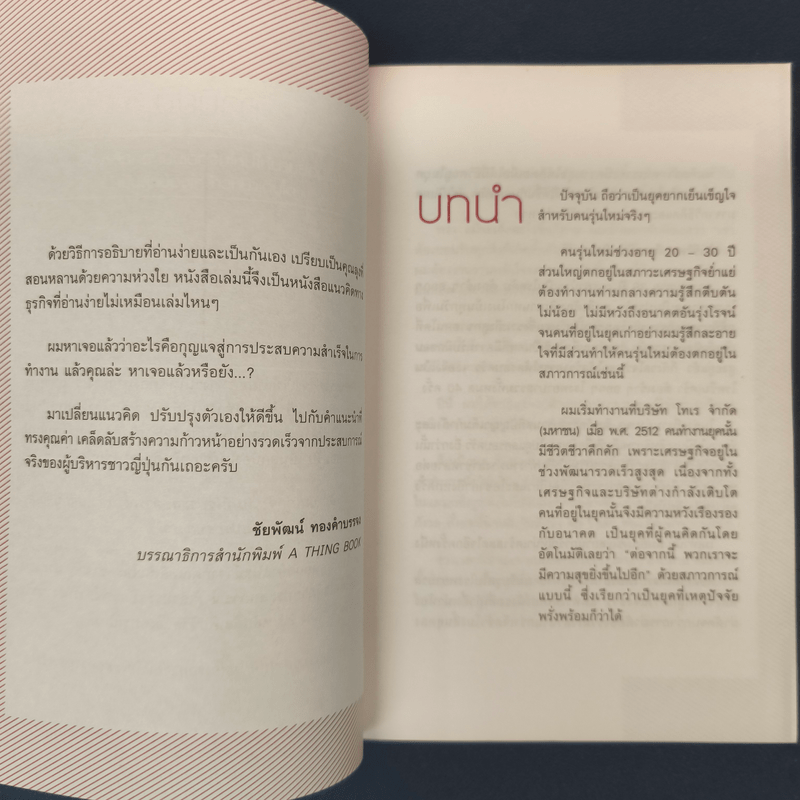 ด้วยวิธีการอธิบายที่อ่านง่ายและเป็นกันเอง เปรียบเป็นคุณลุงที่
สอนหลานด้วยความห่วงใย หนังสือเล่มนี้จึงเป็นหนังสือแนวคิดทาง
ธุรกิจที่อ่านง่ายไม่เหมือนเล่มไหนๆ
ผมหาเจอแล้วว่าอะไรคือกุญแจสู่การประสบความสำเร็จในการ
ทำงาน แล้วคุณล่ะ หาเจอแล้วหรือยัง...?
มาเปลี่ยนแนวคิด ปรับปรุงตัวเองให้ดีขึ้น ไปกับคำแนะนำที่
ทรงคุณค่า เคล็ดลับสร้างความก้าวหน้าอย่างรวดเร็วจากประสบการณ์
จริงของผู้บริหารชาวญี่ปุ่นกันเถอะครับ
ชัยพัฒน์ ทองคำบรรจง
บรรณาธิการสำนักพิมพ์ A THING BOOK
บทนำ
ปัจจุบัน ถือว่าเป็นยุคยากเย็นเข็ญใจ
สำหรับคนรุ่นใหม่จริงๆ
คนรุ่นใหม่ช่วงอายุ 20 – 30 ปี
ส่วนใหญ่ตกอยู่ในสภาวะเศรษฐกิจย่ำแย่
ต้องทำงานท่ามกลางความรู้สึกตีบตัน
ไม่น้อย ไม่มีหวังถึงอนาคตอันรุ่งโรจน์
จนคนที่อยู่ในยุคเก่าอย่างผมรู้สึกละอาย
ใจที่มีส่วนทำให้คนรุ่นใหม่ต้องตกอยู่ใน
สภาวการณ์เช่นนี้
ผมเริ่มทำงานที่บริษัท โทเร จำกัด
(มหาชน) เมื่อ พ.ศ. 2512 คนทำงานยุคนั้น
มีชีวิตชีวาคึกคัก เพราะเศรษฐกิจอยู่ใน
ช่วงพัฒนารวดเร็วสูงสุด เนื่องจากทั้ง
เศรษฐกิจและบริษัทต่างกำลังเติบโต
คนที่อยู่ในยุคนั้นจึงมีความหวังเรืองรอง
กับอนาคต เป็นยุคที่ผู้คนคิดกันโดย
อัตโนมัติเลยว่า "ต่อจากนี้ พวกเราจะ
มีความสุขยิ่งขึ้นไปอีก" ด้วยสภาวการณ์
แบบนี้ ซึ่งเรียกว่าเป็นยุคที่เหตุปัจจัย
พรั่งพร้อมก็ว่าได้